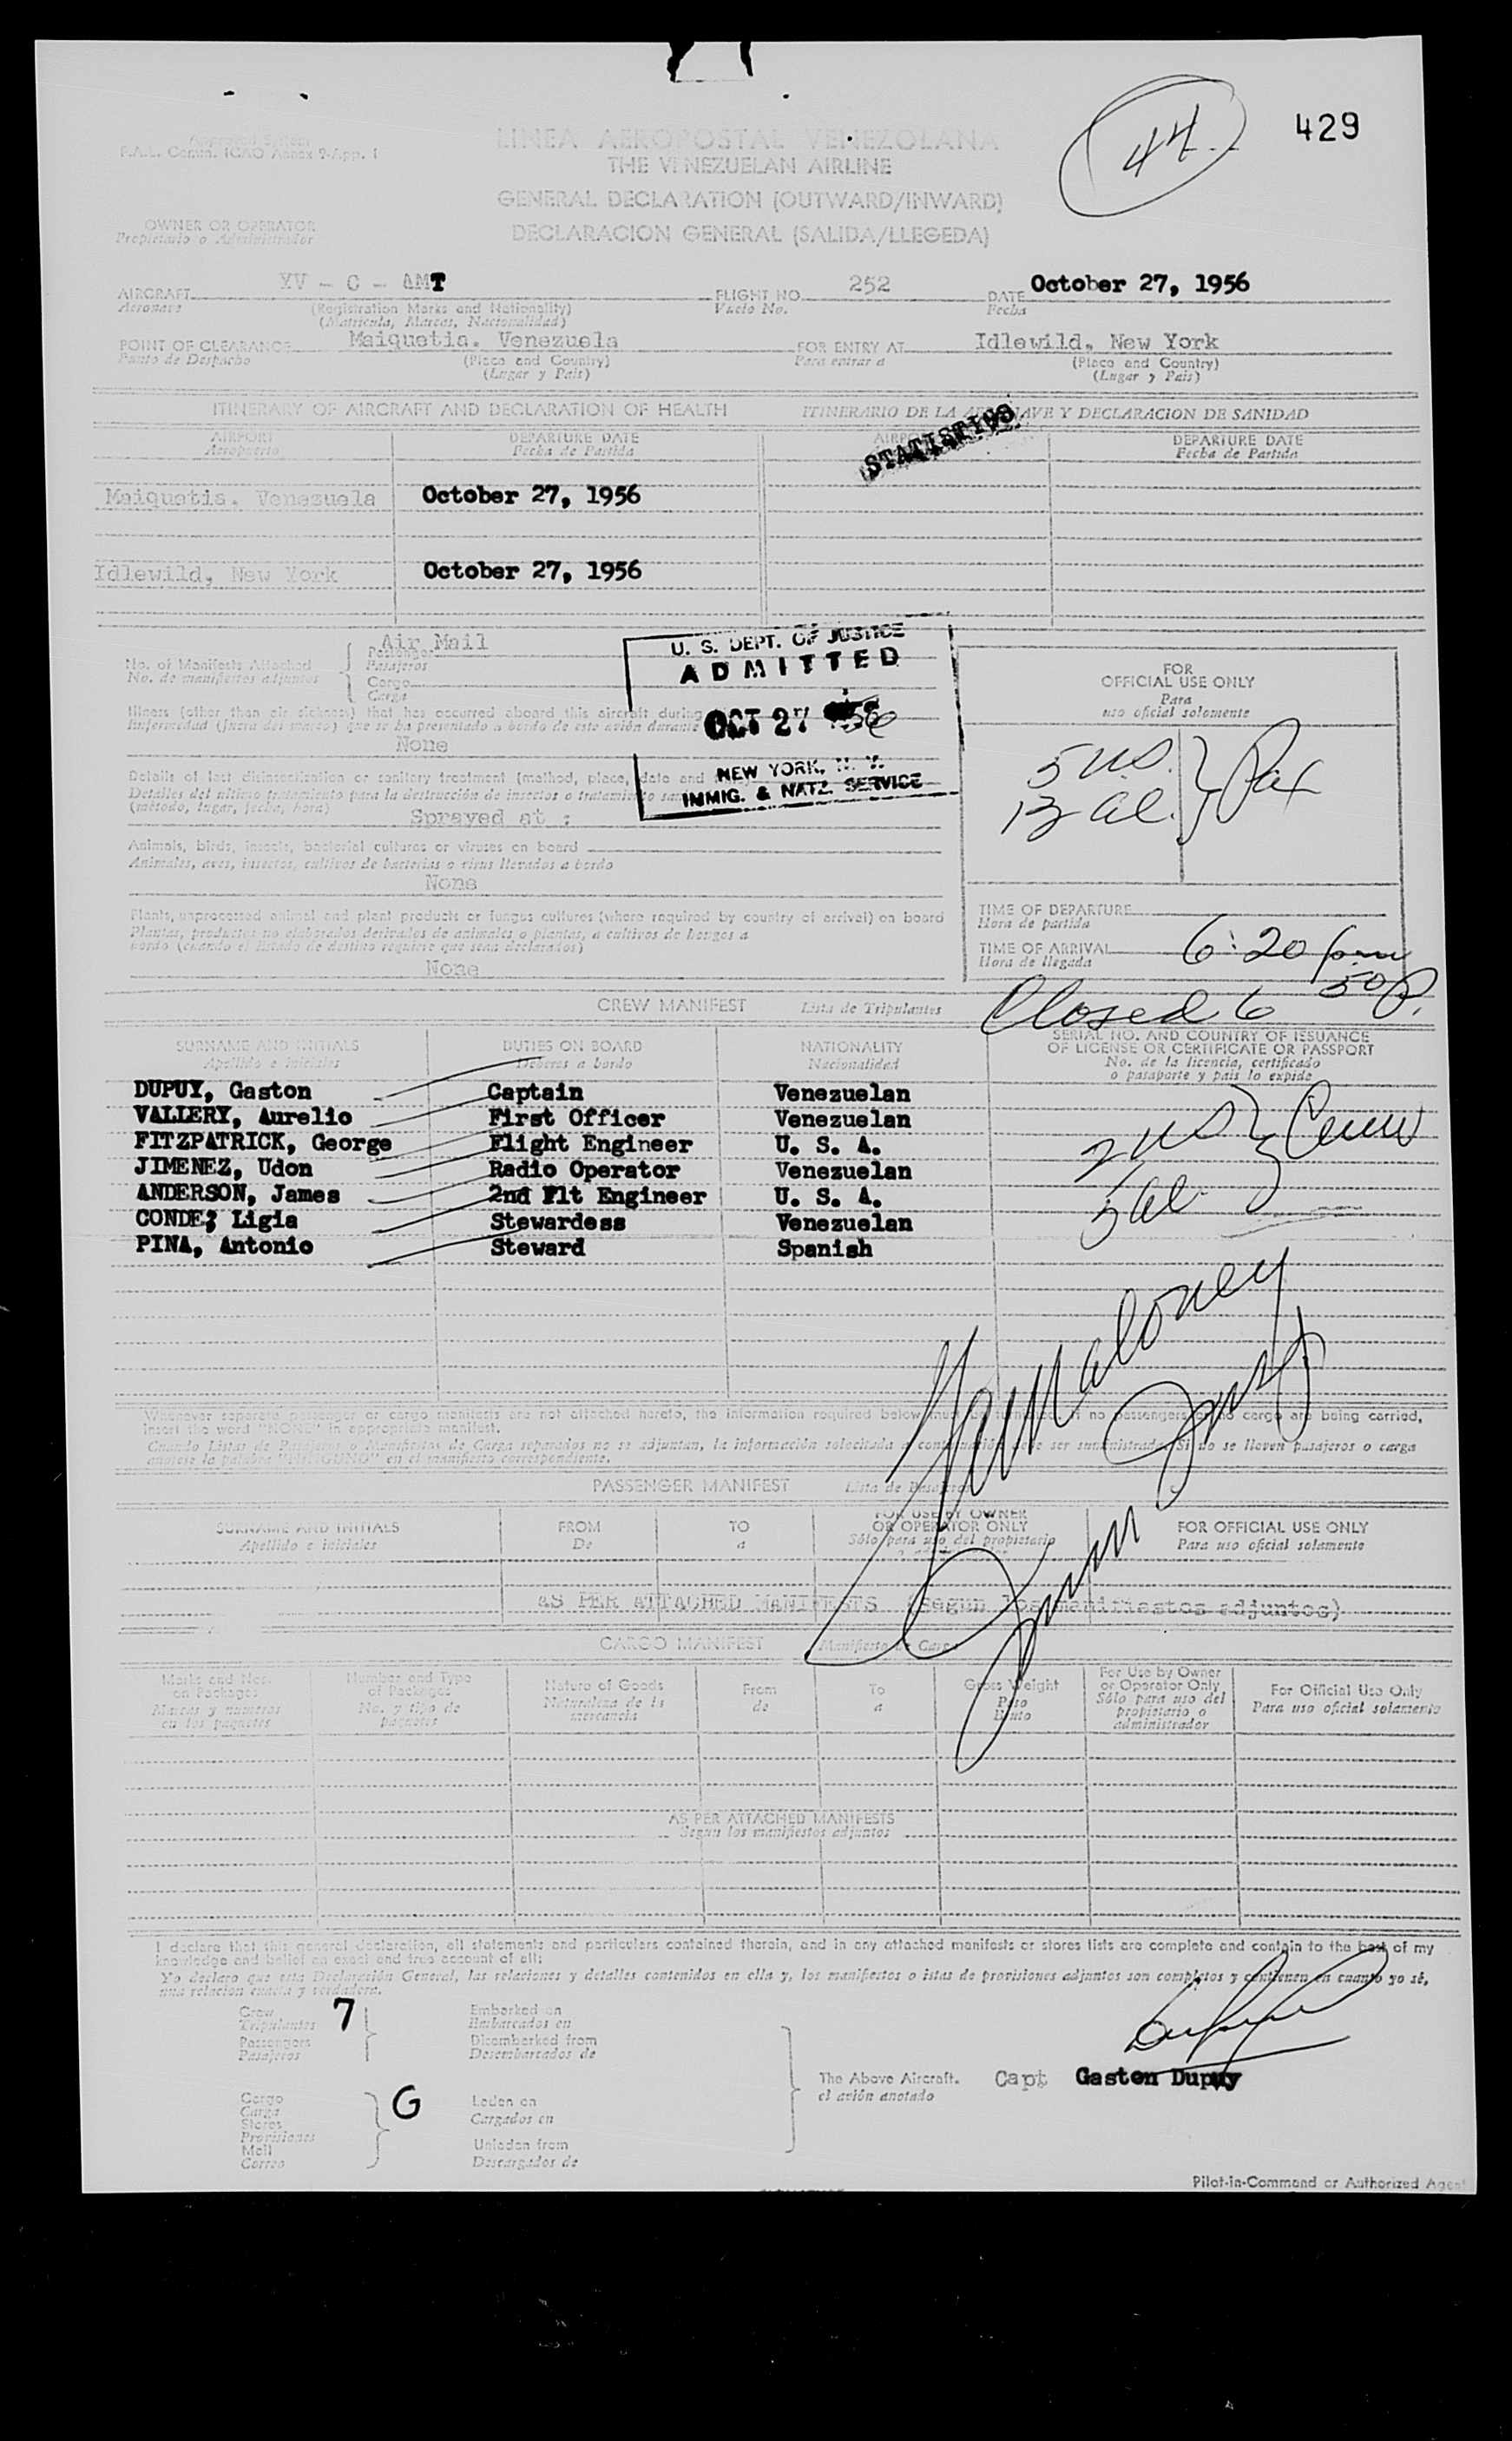 44
429
Approved System
F.A.L. Comm. ICAO Annex 9-App. 1
LINEA AEROPOSTAL VENEZOLANA
THE VENEZUELAN AIRLINE
GENERAL DECLARATION (OUTWARD/INWARD)
DECLARACION GENERAL (SALIDA/LLEGEDA)
OWNER OR OPERATOR
Propietario o Administrador
AIRCRAFT YV - C - AMT FLIGHT NO. 252 DATE October 27, 1956
Aeronave (Registration Marks and Nationality) Vuelo No. Fecha
(Matricula, Marcas, Nacionalidad)
POINT OF CLEARANCE Maiquetia. Venezuela FOR ENTRY AT Idlewild, New York
Punto de Despacho (Place and Country) Para entrar a (Place and Country)
(Lugar y Pais) (Lugar y Pais)
ITINERARY OF AIRCRAFT AND DECLARATION OF HEALTH ITINERARIO DE LA AVE Y DECLARACION DE SANIDAD
STATISTICS
AIRPORT DEPARTURE DATE DEPARTURE DATE
Aeropuerto Fecha de Partida Fecha de Partida
Maiquetia. Venezuela October 27, 1956
Idlewild, New York October 27, 1956
Air Mail
No. of Manifests Attached Passenger
No. de manifiestos adjuntos Pasajeros
Cargo
Carga
U. S. DEPT. OF JUSTICE
ADMITTED
OCT 27 56
NEW YORK, N. Y.
IMMIG. & NATZ. SERVICE
Illness (other than air sickness) that has occurred aboard this aircraft during
Enfermedad (fuera del mareo) que se ha presentado a bordo de este avión durante
None
Details of last disinsectisation or sanitary treatment (method, place, date and
Detalles del ultimo tratamiento para la destrucción de insectos o tratamiento
(método, lugar, fecha, hora)
Sprayed at :
Animals, birds, insects, bacterial cultures or viruses on board
Animales, aves, insectos, cultivos de bacterias o virus llevados a bordo
None
Plants, unprocessed animal and plant products or fungus cultures (where required by country of arrival) on board
Plantas, productos no elaborados derivados de animales o plantas, o cultivos de hongos a
bordo (cuando el Estado de destino requiere que sean declarados)
None
FOR
OFFICIAL USE ONLY
Para
uso oficial solamente
5 US.
13 al. } Pax
TIME OF DEPARTURE
Hora de partida
TIME OF ARRIVAL 6:20 pm
Hora de llegada
Closed 6 50 P.
CREW MANIFEST Lista de Tripulantes
SURNAME AND INITIALS DUTIES ON BOARD NATIONALITY SERIAL NO. AND COUNTRY OF ISSUANCE
Apellido e iniciales Deberes a bordo Nacionalidad OF LICENSE OR CERTIFICATE OR PASSPORT
No. de la licencia, certificado
o pasaporte y pais lo expide
DUPUY, Gaston Captain Venezuelan
VALLERY, Aurelio First Officer Venezuelan
FITZPATRICK, George Flight Engineer U. S. A.
JIMENEZ, Udon Radio Operator Venezuelan
ANDERSON, James 2nd Flt Engineer U. S. A.
CONDE; Ligia Stewardess Venezuelan
PINA, Antonio Steward Spanish
2 US } Crew
5 al
Maloney
Whenever separate passenger or cargo manifests are not attached hereto, the information required below must be no passengers cargo are being carried,
insert the word "NONE" in appropriate manifest.
Cuando Listas de Pasajeros o Manifiestos de Carga separados no se adjuntan, la información solocitada a debe ser suministrada. Si no se llevan pasajeros o carga
anotese la palabra "NINGUNO" en el manifiesto correspondiente.
PASSENGER MANIFEST Lista de Pasajeros
SURNAME AND INITIALS FROM TO FOR USE BY OWNER OR OPERATOR ONLY FOR OFFICIAL USE ONLY
Apellido e iniciales De a Sólo para uso del propietario Para uso oficial solamente
AS PER ATTACHED MANIFESTS (Segun los manifiestos adjuntos)
CARGO MANIFEST Manifiesto de Carga
Marks and Nos. on Packages Number and Type of Packages Nature of Goods From To Gross Weight For Use by Owner or Operator Only For Official Use Only
Marcas y numeros en los paquetes No. y tipo de paquetes Naturaleza de la mercancia de a Peso Bruto Sólo para uso del propietario o administrador Para uso oficial solamente
AS PER ATTACHED MANIFESTS
Segun los manifiestos adjuntos
I declare that this general declaration, all statements and particulars contained therein, and in any attached manifests or stores lists are complete and contain to the best of my
knowledge and belief an exact and true account of all:
Yo declaro que esta Declaración General, las relaciones y detalles contenidos en ella y, los manifiestos o istas de provisiones adjuntos son completos y contienen en cuanto yo sé,
una relacion exacta y verdadera.
Crew 7 Embarked on
Tripulantes Embarcados en
Passengers Disembarked from
Pasajeros Desembarcados de
The Above Aircraft. Capt Gaston Dupuy
el avión anotado
Cargo G Laden on
Carga Cargados en
Stores
Provisiones Unladen from
Mail Descargados de
Correo
Pilot-in-Command or Authorized Agent